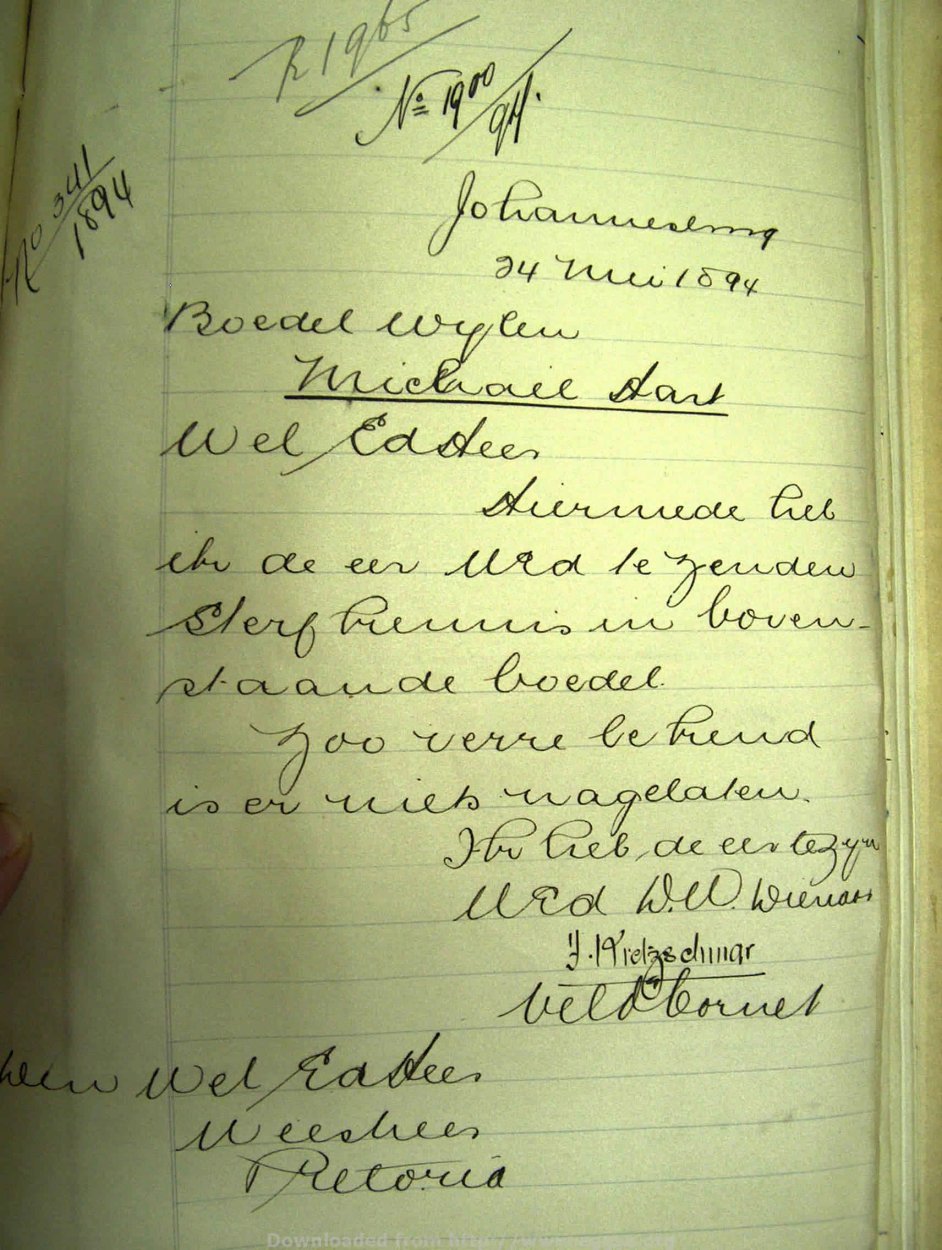 R 1965
No 1900/94.
No 341/1894
Johannesburg
24 Mei 1894
Boedel Wylen
Michael Hart
Wel Ed Heer
Hiermede heb
ik de eer UEd te zenden
Sterf kennis in boven-
staande boedel.
Zoo verre bekend
is er niets nagelaten.
Ik heb de eer te zyn
UEd D.W. Dienaar
F. Kretzschmar
Veld Cornet
Den Wel Ed Heer
Weesheer
Pretoria
Downloaded from